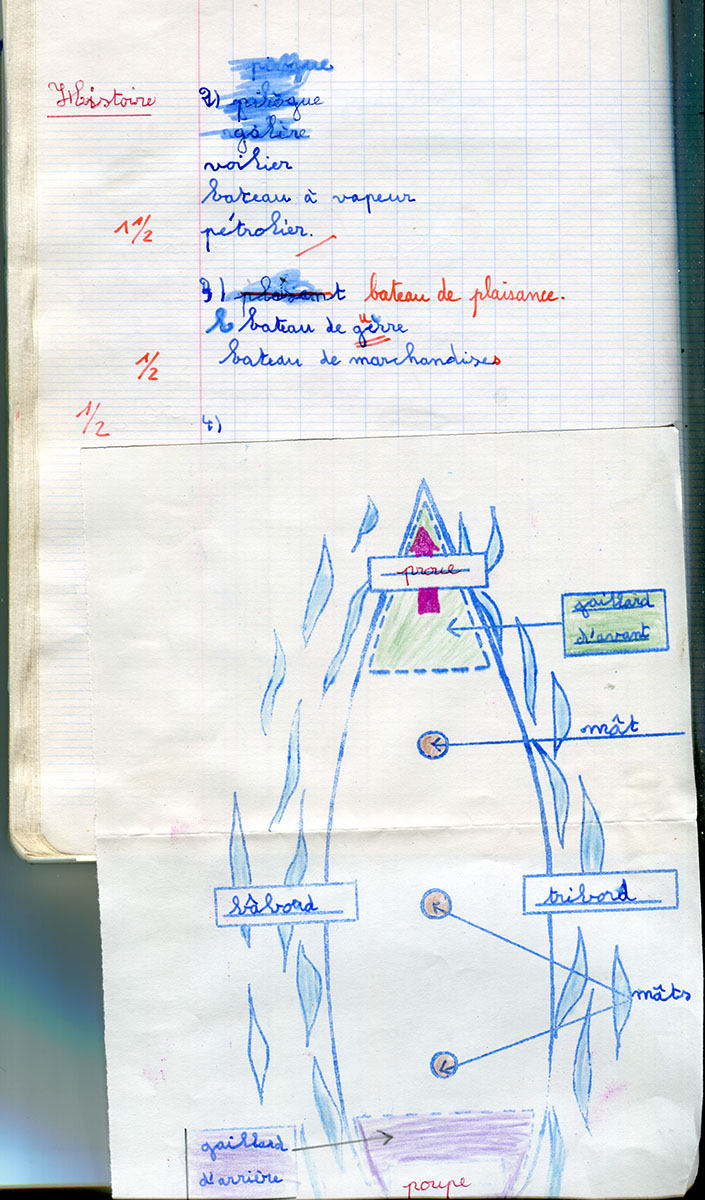 Histoire
pirogue
2) pirogue
galère
voilier
bateau à vapeur
1 1/2 pétrolier.
3) plaisant bateau de plaisance.
bateau de guèrre
1/2 bateau de marchandises
1/2 4)
proue
gaillard
d'avant
mât
bâbord
tribord
mâts
gaillard
d'arrière
poupe